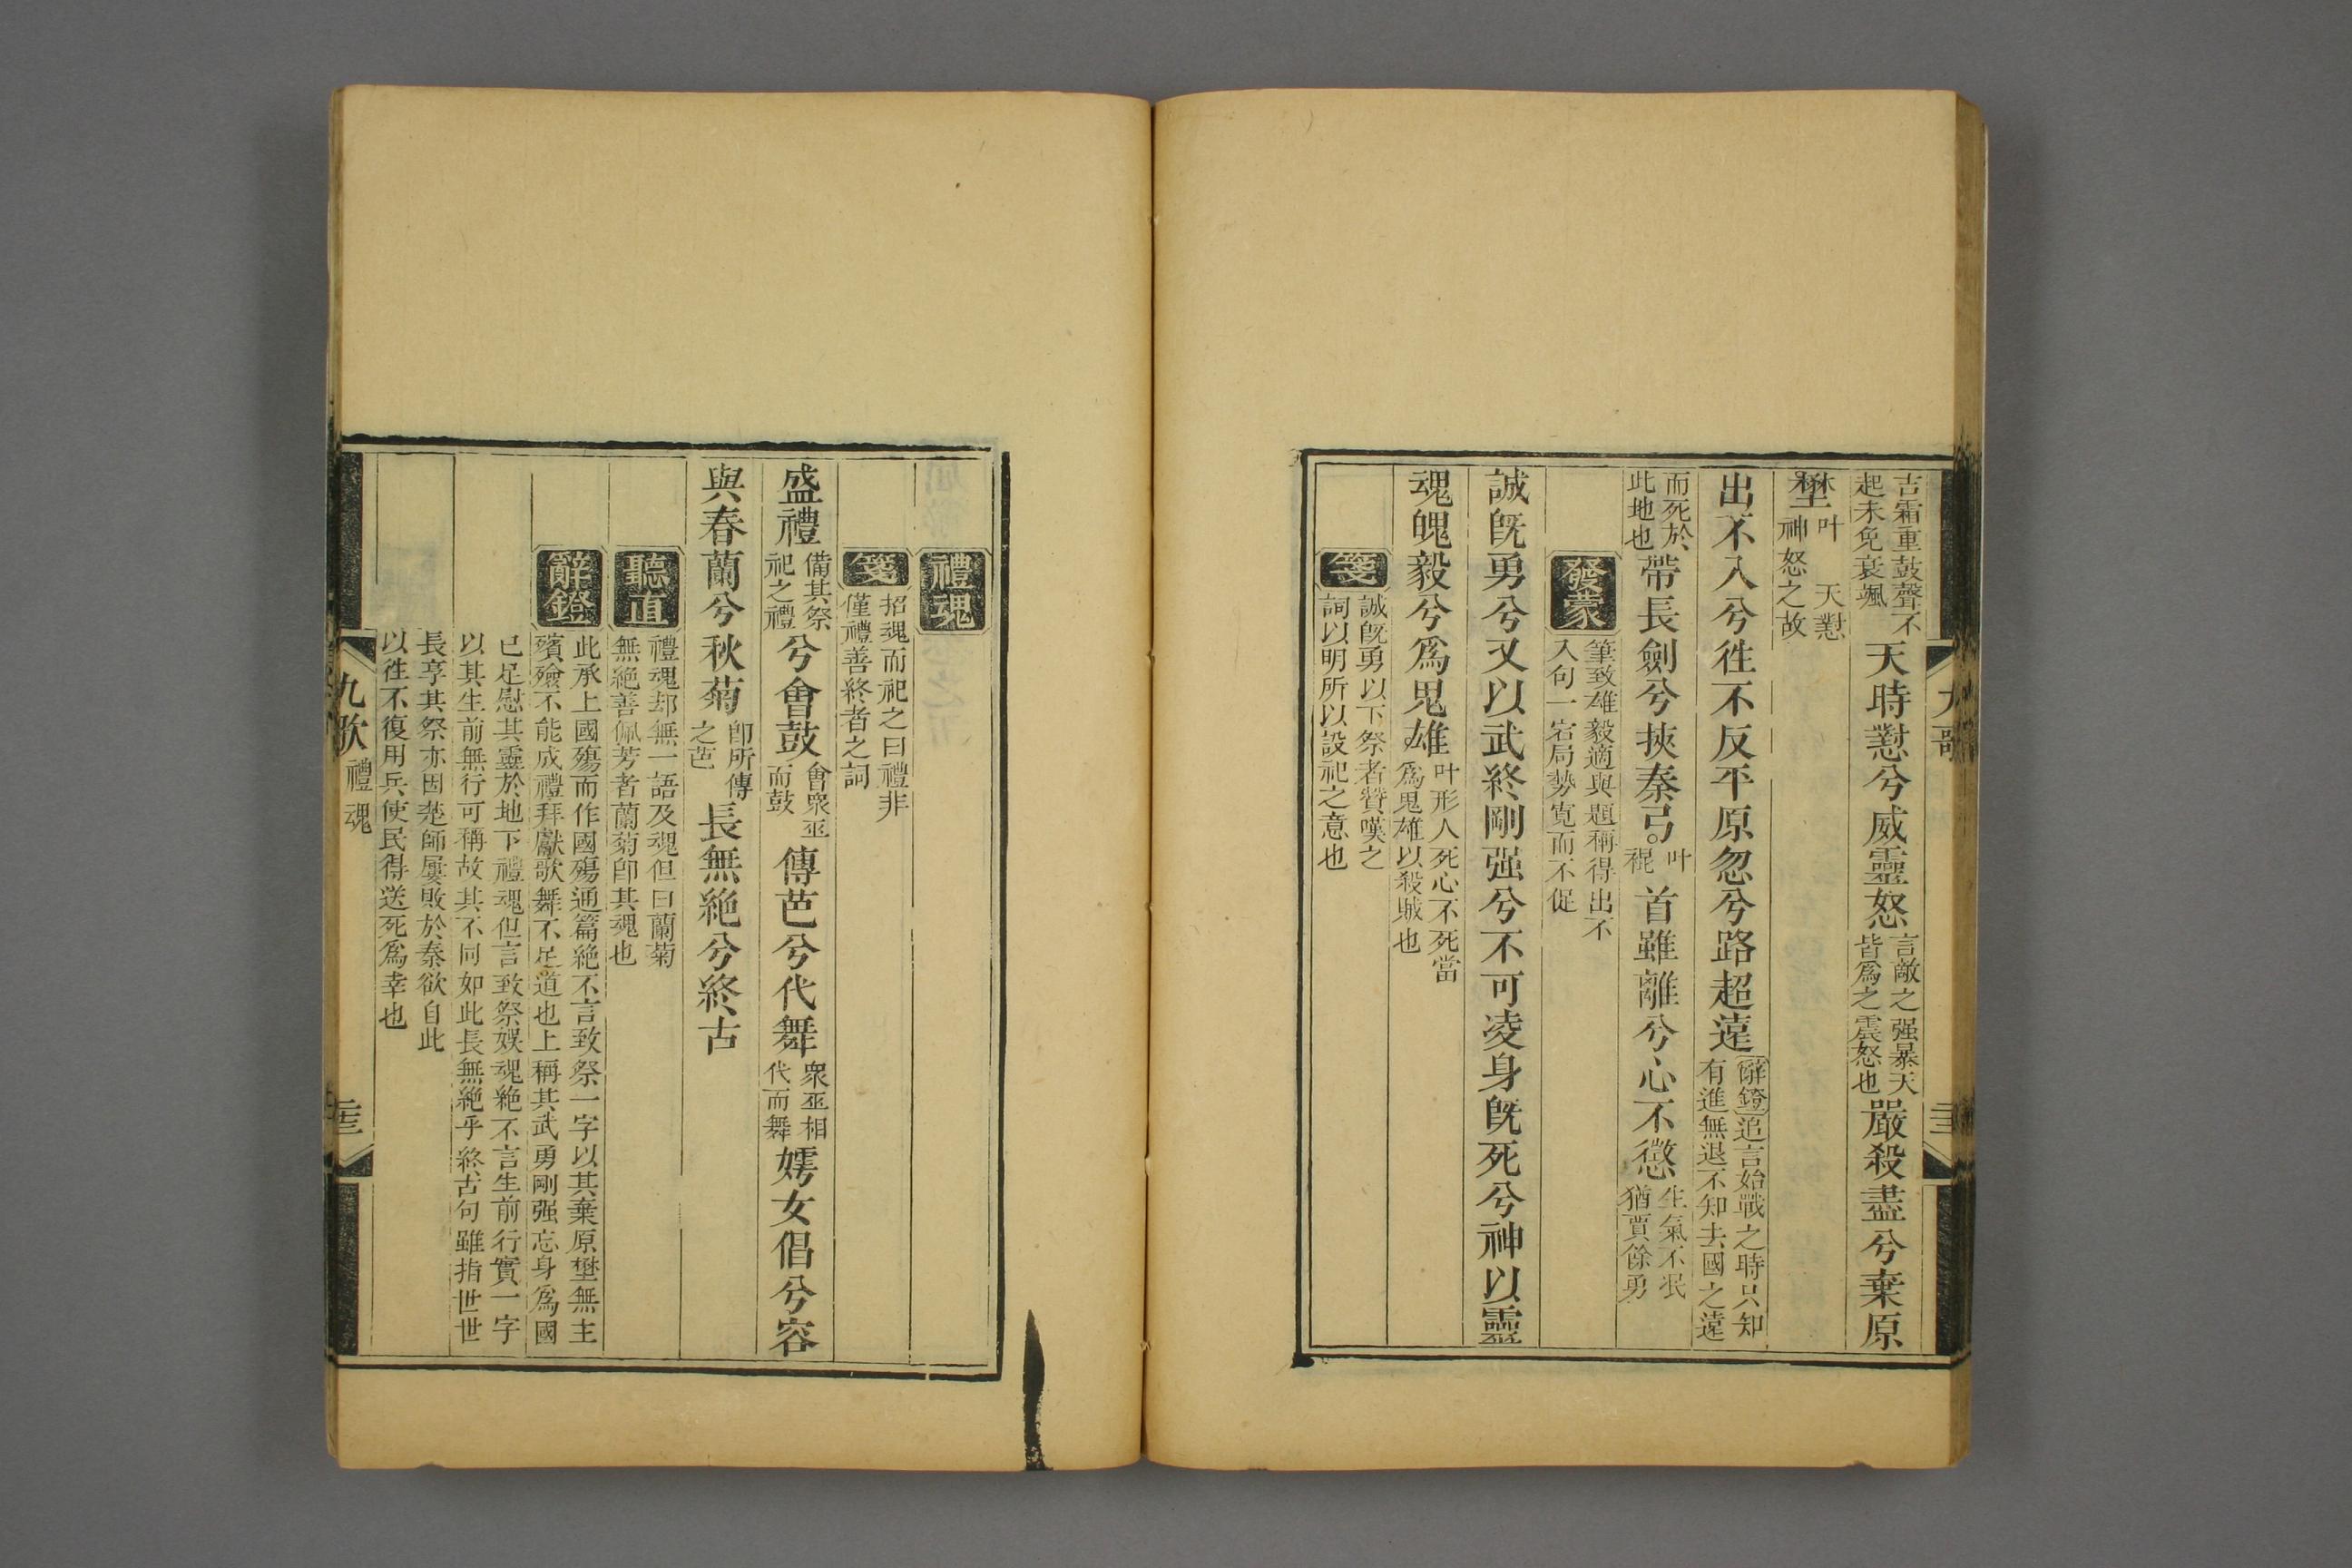 吉霜重鼓聲不
起未免衰颯
天時懟兮威靈怒
言敵之强暴天
皆爲之震怒也
嚴殺盡兮棄原
埜
叶
天懟
神怒之故
出不入兮徃不反平原忽兮路超遠
辭鐙追言始戰之時只知
有進無退不知去國之遠
而死於
此地也
帶長劍兮挾秦弓
叶
裩
首雖離兮心不懲
生氣不泯
猶賈餘勇
發蒙
筆致雄毅適與題稱得出不
入句一宕局勢寬而不促
誠旣勇兮又以武終剛强兮不可凌身旣死兮神以靈
魂魄毅兮爲鬼雄
叶形人死心不死當
爲鬼雄以殺賊也
箋
誠旣勇以下祭者贊嘆之
詞以明所以設祀之意也
禮魂
箋
招魂而祀之曰禮非
僅禮善終者之詞
盛禮
備其祭
祀之禮
兮會鼓
會衆巫
而鼓
傳芭兮代舞
衆巫相
代而舞
嫮女倡兮容
與春蘭兮秋菊
卽所傳
之芭
長無絶兮終古
聽直
禮魂却無一語及魂但曰蘭菊
無絶善佩芳者蘭菊卽其魂也
辭鐙
此承上國殤而作國殤通篇絶不言致祭一字以其棄原埜無主
殯殮不能成禮拜獻歌舞不足道也上稱其武勇剛强忘身爲國
已足慰其靈於地下禮魂但言致祭娱魂絶不言生前行實一字
以其生前無行可稱故其不同如此長無絶乎終古句雖指世世
長享其祭亦因楚師屢敗於秦欲自此
以徃不復用兵使民得送死爲幸也
九歌
禮魂